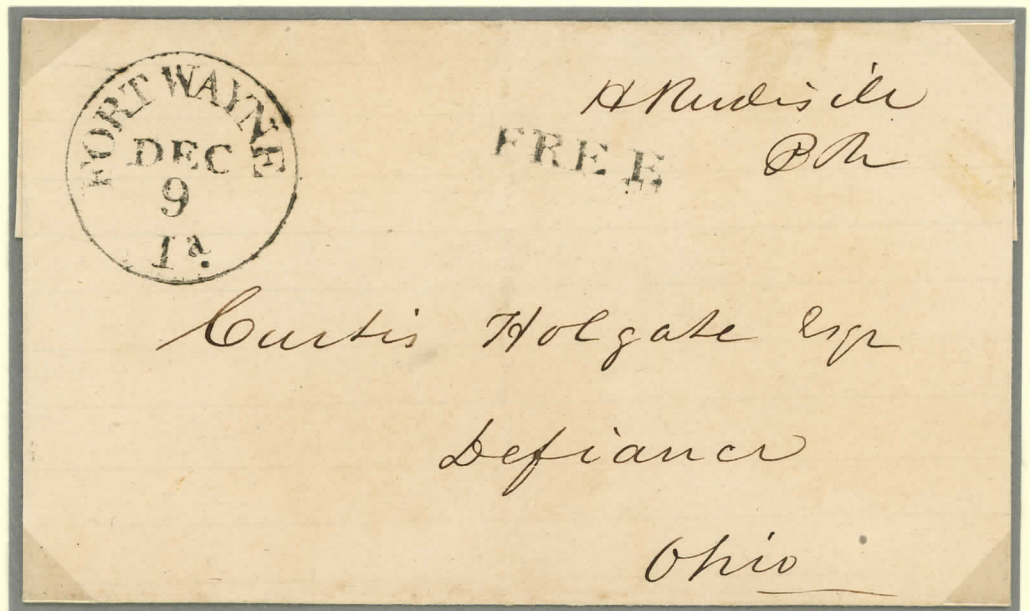 FORT WAYNE
DEC
9
Ia.
FREE
H Rudisill
P M
Curtis Holgate Esqr
Defiance
Ohio